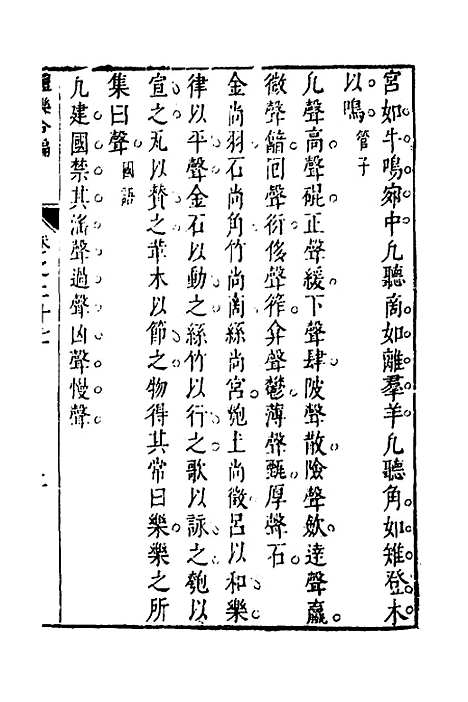 宮如牛鳴窌中凡聽商如離羣羊凡聽角如雉登木
以鳴管子
凡聲高聲䃂正聲緩下聲肆陂聲散險聲斂達聲贏
微聲韽回聲衍侈聲筰弇聲鬱薄聲甄厚聲石
金尚羽石尚角竹尚商絲尚宮匏土尚徵呂以和樂
律以平聲金石以動之絲竹以行之歌以詠之匏以
宣之瓦以贊之革木以節之物得其常曰樂樂之所
集曰聲國語
凡建國禁其滛聲過聲凶聲慢聲
禮樂合編 卷之二十七